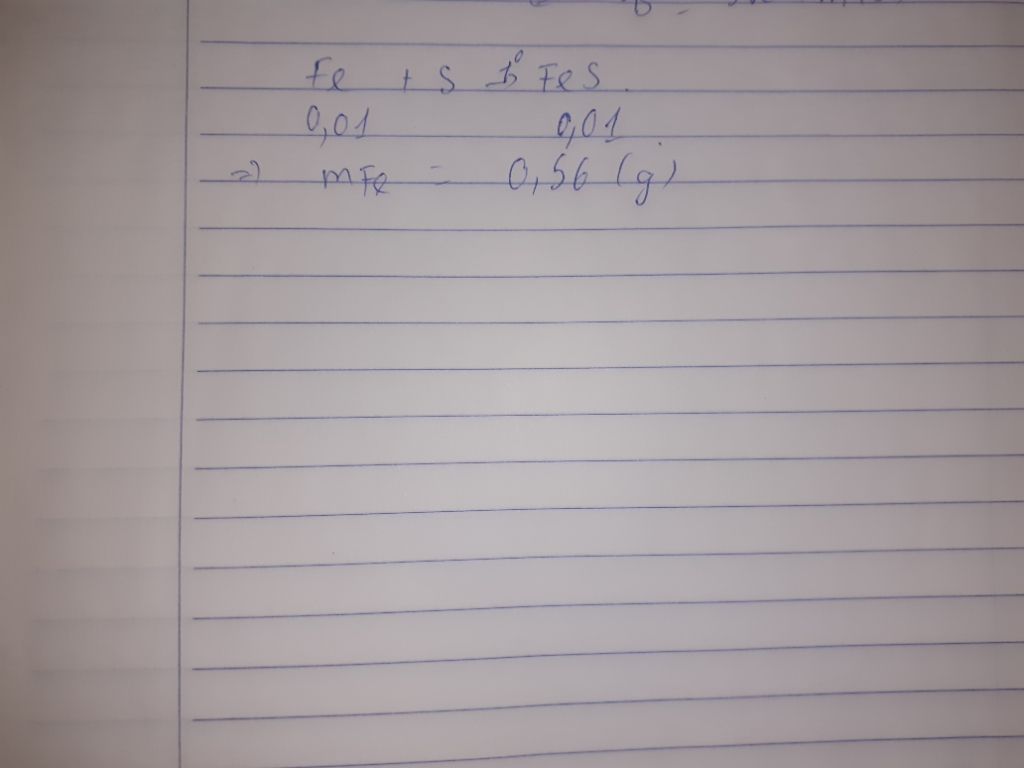 Fe + S t° FeS.
0,01 0,01
=) mFe = 0,56 (g)